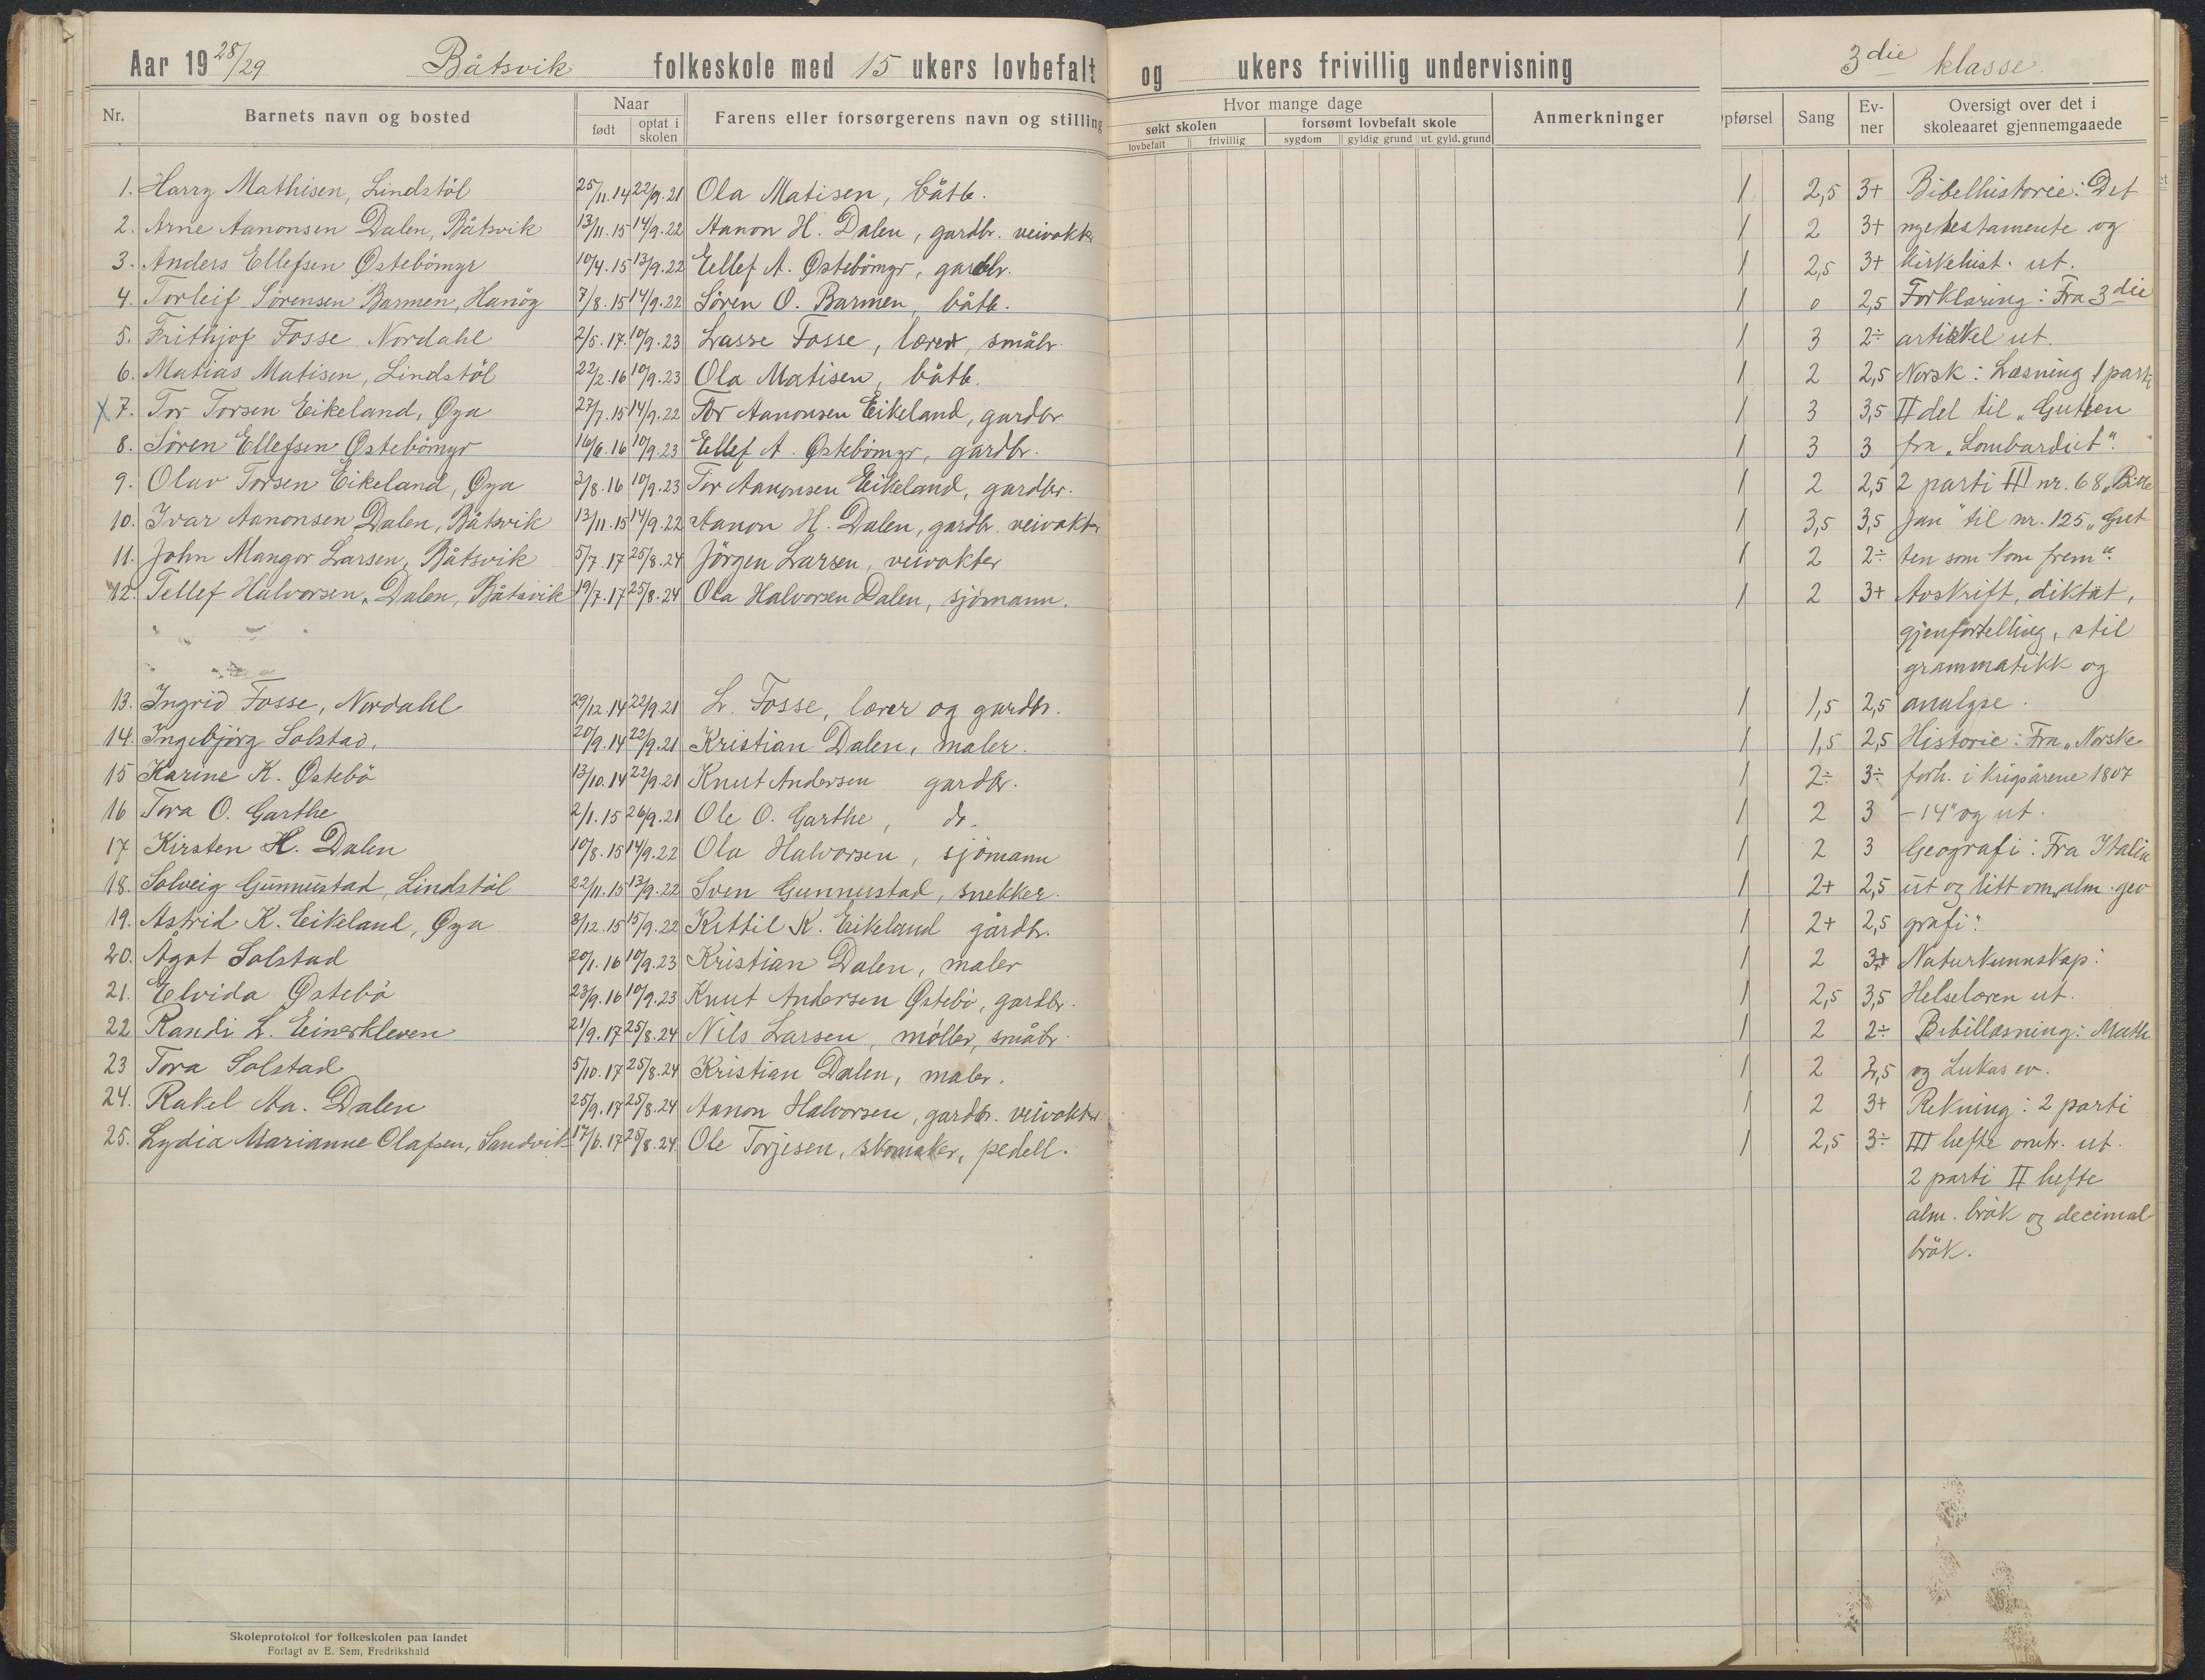 Aar 1928/29 Båtsvik folkeskole med 15 ukers lovbefalt og ukers frivillig undervisning 3die klasse.
Nr. Barnets navn og bosted Naar født optat i skolen Farens eller forsørgerens navn og stilling Hvor mange dage søkt skolen lovbefalt frivillig forsømt lovbefalt skole sygdom gyldig grund ut. gyld. grund Anmerkninger pførsel Sang Ev-ner Oversigt over det i skoleaaret gjennemgaaede
1. Harry Mathisen, Lindstöl 25/11.14 22/9.21 Ola Matisen, båtb. 1 2,5 3+ Bibelhistorie: Det
2. Arne Aanonsen Dalen, Båtsvik 13/11.15 14/9.22 Aanon H. Dalen, gardbr. veivokter 1 2 3+ nye testamente og
3. Anders Ellefsen Östebömyr 10/4.15 13/9.22 Ellef A. Östebömyr, gardbr. 1 2,5 3+ kirkehist. ut.
4. Torleif Sörensen Barmen, Hanöy 7/8.15 14/9.22 Sören O. Barmen, båtb. 1 0 2,5 Forklaring: Fra 3die
5. Frithjof Fosse Nordahl 2/5.17. 10/9.23 Lasse Fosse, lærer, småbr. 1 3 2÷ artikkel ut.
6. Matias Matisen, Lindstöl 22/2.16 10/9.23 Ola Matisen, båtb. 1 2 2,5 Norsk: Læsning 1 parti
x 7. Tor Torsen Eikeland, Öya 27/7.15 14/9.22 Tor Aanonsen Eikeland, gardbr 1 3 3,5 II del til "Gutten
8. Sören Ellefsen Östebömyr 16/6.16 10/9.23 Ellef A. Östebömyr, gardbr. 1 3 3 fra "Lombardiet".
9. Olav Torsen Eikeland, Öya 3/8.16 10/9.23 Tor Aanonsen Eikeland, gardbr. 1 2 2,5 2 parti III nr. 68 "Bitte
10. Ivar Aanonsen Dalen, Båtsvik 13/11.15 14/9.22 Aanon H. Dalen, gardbr. veivokter 1 3,5 3,5 Jan" til nr. 125 "Gut
11. John Mangor Larsen, Båtsvik 5/7.17 25/8.24 Jörgen Larsen, veivokter 1 2 2÷ ten som kom frem".
12. Tellef Halvorsen Dalen, Båtsvik 19/7.17 25/8.24 Ola Halvorsen Dalen, sjömann. 1 2 3+ Avskrift, diktat,
gjenfortelling, stil
grammatikk og
13. Ingrid Fosse, Nordahl 29/12.14 22/9.21 L. Fosse, lærer og gardbr. 1 1,5 2,5 analyse.
14. Ingebjörg Solstad, 20/9.14 22/9.21 Kristian Dalen, maler. 1 1,5 2,5 Historie: Fra "Norske
15 Karine K. Östebö 13/10.14 22/9.21 Knut Andersen gardbr. 1 2÷ 3÷ forh. i krigsårene 1807
16 Tora O. Garthe 2/1.15 26/9.21 Ole O. Garthe, do. 1 2 3 -14" og ut.
17 Kirsten H. Dalen 10/8.15 14/9.22 Ola Halvorsen, sjömann 1 2 3 Geografi: Fra Italia
18. Solveig Gunnustad, Lindstöl 22/11.15 13/9.22 Sven Gunnustad, snekker. 1 2+ 2,5 ut og litt om "alm. geo
19. Astrid K. Eikeland, Öya 8/12.15 15/9.22 Kittil K. Eikeland gårdbr. 1 2+ 2,5 grafi".
20. Ågot Solstad 20/1.16 10/9.23 Kristian Dalen, maler 1 2 3+ Naturkunnskap:
21. Elvida Östebö 23/9.16 10/9.23 Knut Andersen Östebö, gardbr. 1 2,5 3,5 Helselæren ut.
22 Randi L. Einerkleven 21/9.17 25/8.24 Nils Larsen, möller, småbr. 1 2 2÷ Bibellæsning: Math
23 Tora Solstad 5/10.17 25/8.24 Kristian Dalen, maler. 1 2 2,5 og Lukas ev.
24. Rakel Aa. Dalen 25/9.17 25/8.24 Aanon Halvorsen, gardbr. veivokter. 1 2 3+ Rekning: 2 parti
25. Lydia Marianne Olafsen, Sandvik 17/6.17 25/8.24. Ole Torjesen, skomaker, pedell. 1 2,5 3÷ III hefte omtr. ut.
2 parti II hefte
alm. brök og decimal
brök.
Skoleprotokol for folkeskolen paa landet
Forlagt av E. Sem, Fredrikshald